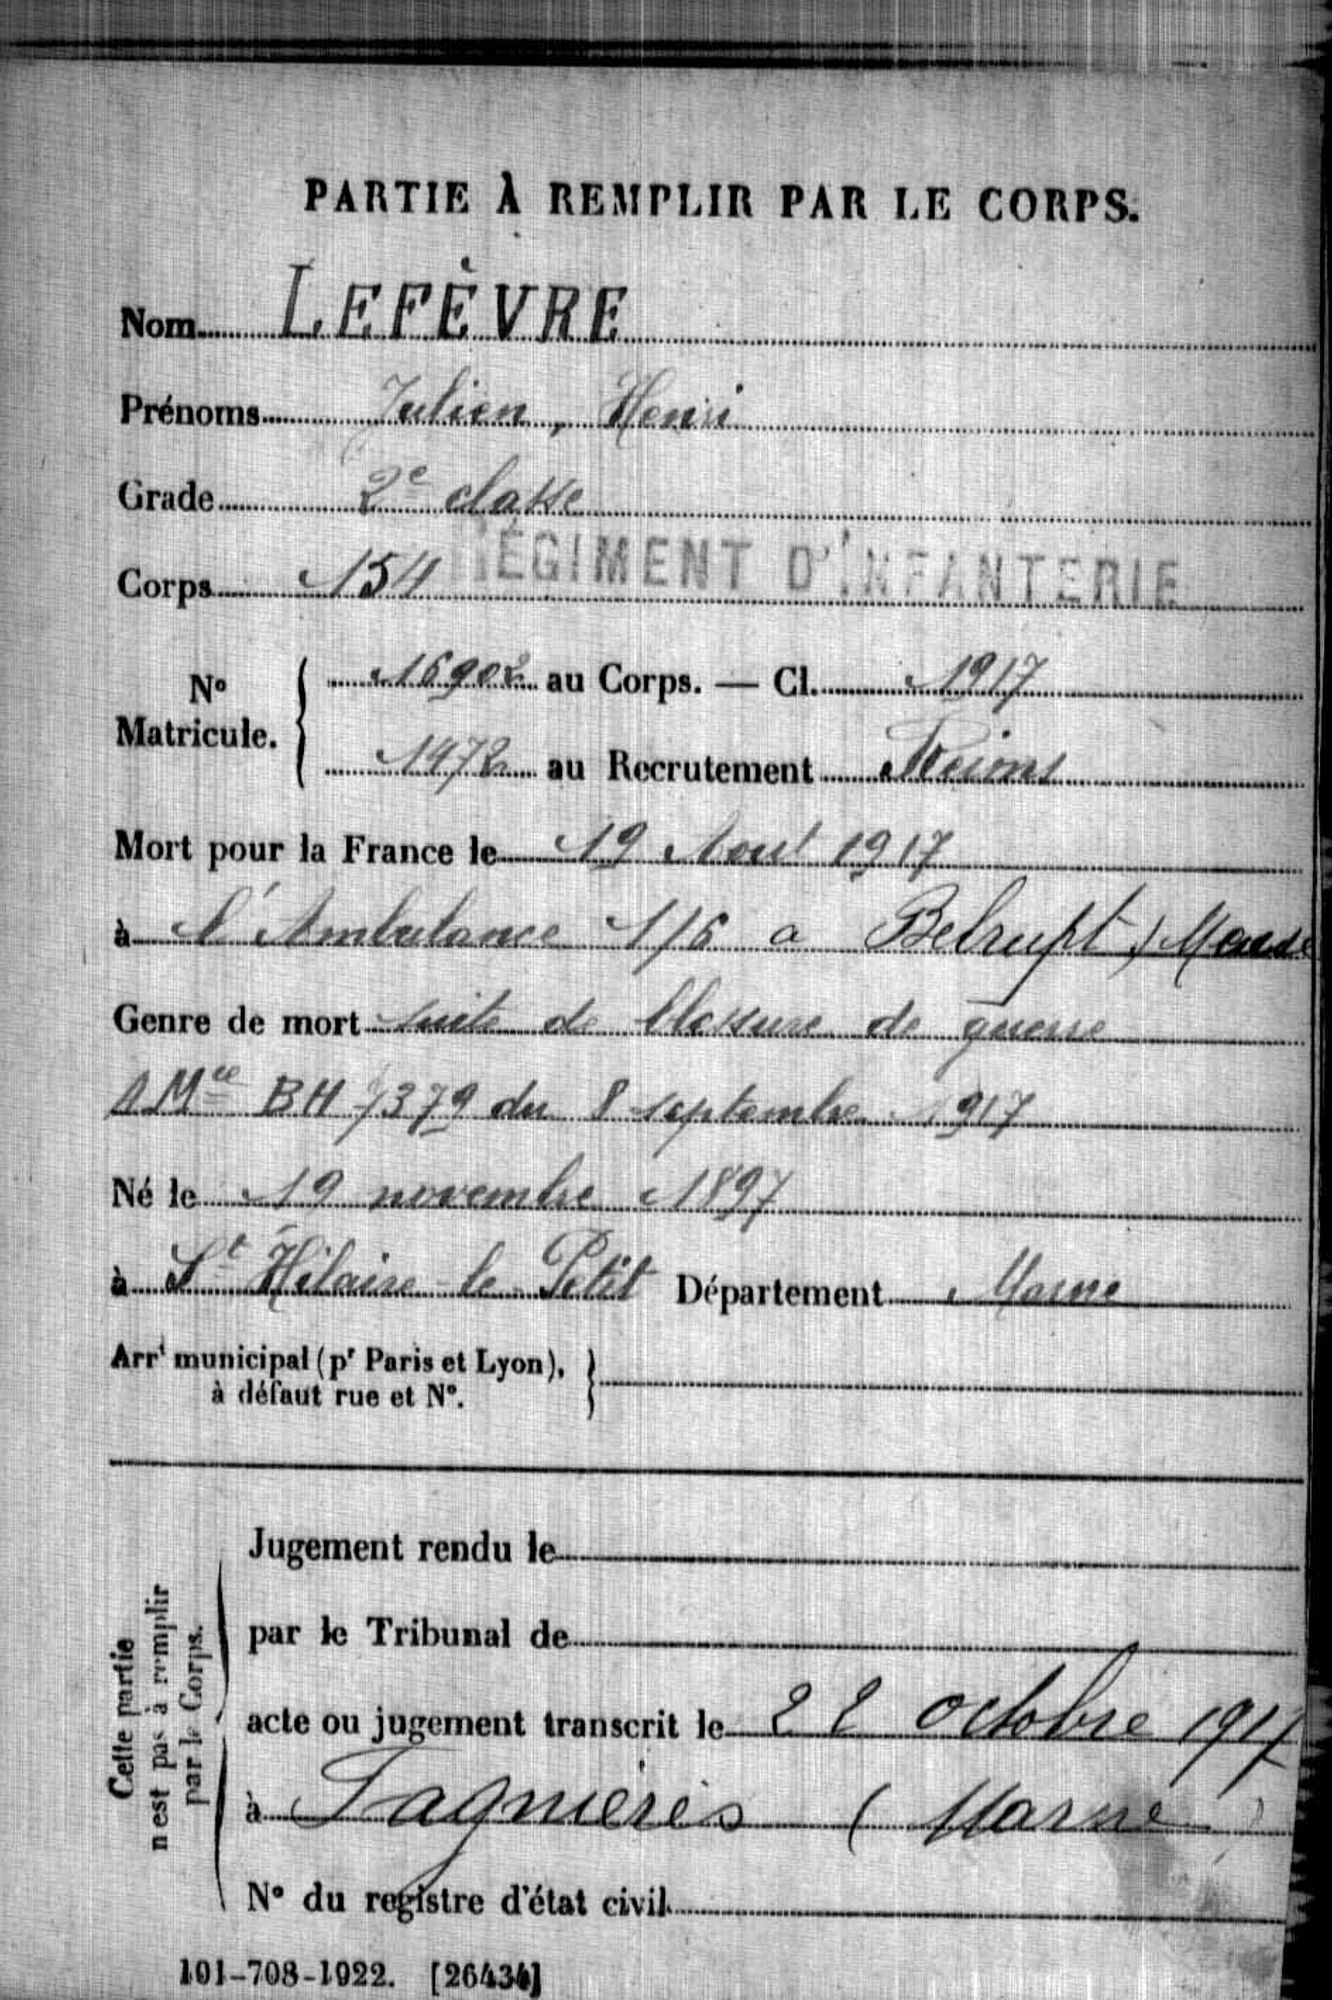 PARTIE À REMPLIR PAR LE CORPS.
Nom LEFÈVRE
Prénoms Julien, Henri
Grade 2e classe
Corps 154 RÉGIMENT D'INFANTERIE
No Matricule. { 16902 au Corps. — Cl. 1917
1472 au Recrutement Reims
Mort pour la France le 19 Août 1917
à l'Ambulance 1/6 a Belrupt, Meuse
Genre de mort suite de blessure de guerre
BH 379 du 8 septembre 1917
Né le 19 novembre 1897
à St Hilaire-le-Petit Département Marne
Arrt municipal (pr Paris et Lyon), }
à défaut rue et No.
Cette partie
n'est pas à remplir
par le Corps.
Jugement rendu le
par le Tribunal de
acte ou jugement transcrit le 22 octobre 1917
à Fagnières (Marne)
No du registre d'état civil
101-708-1922. [26434]